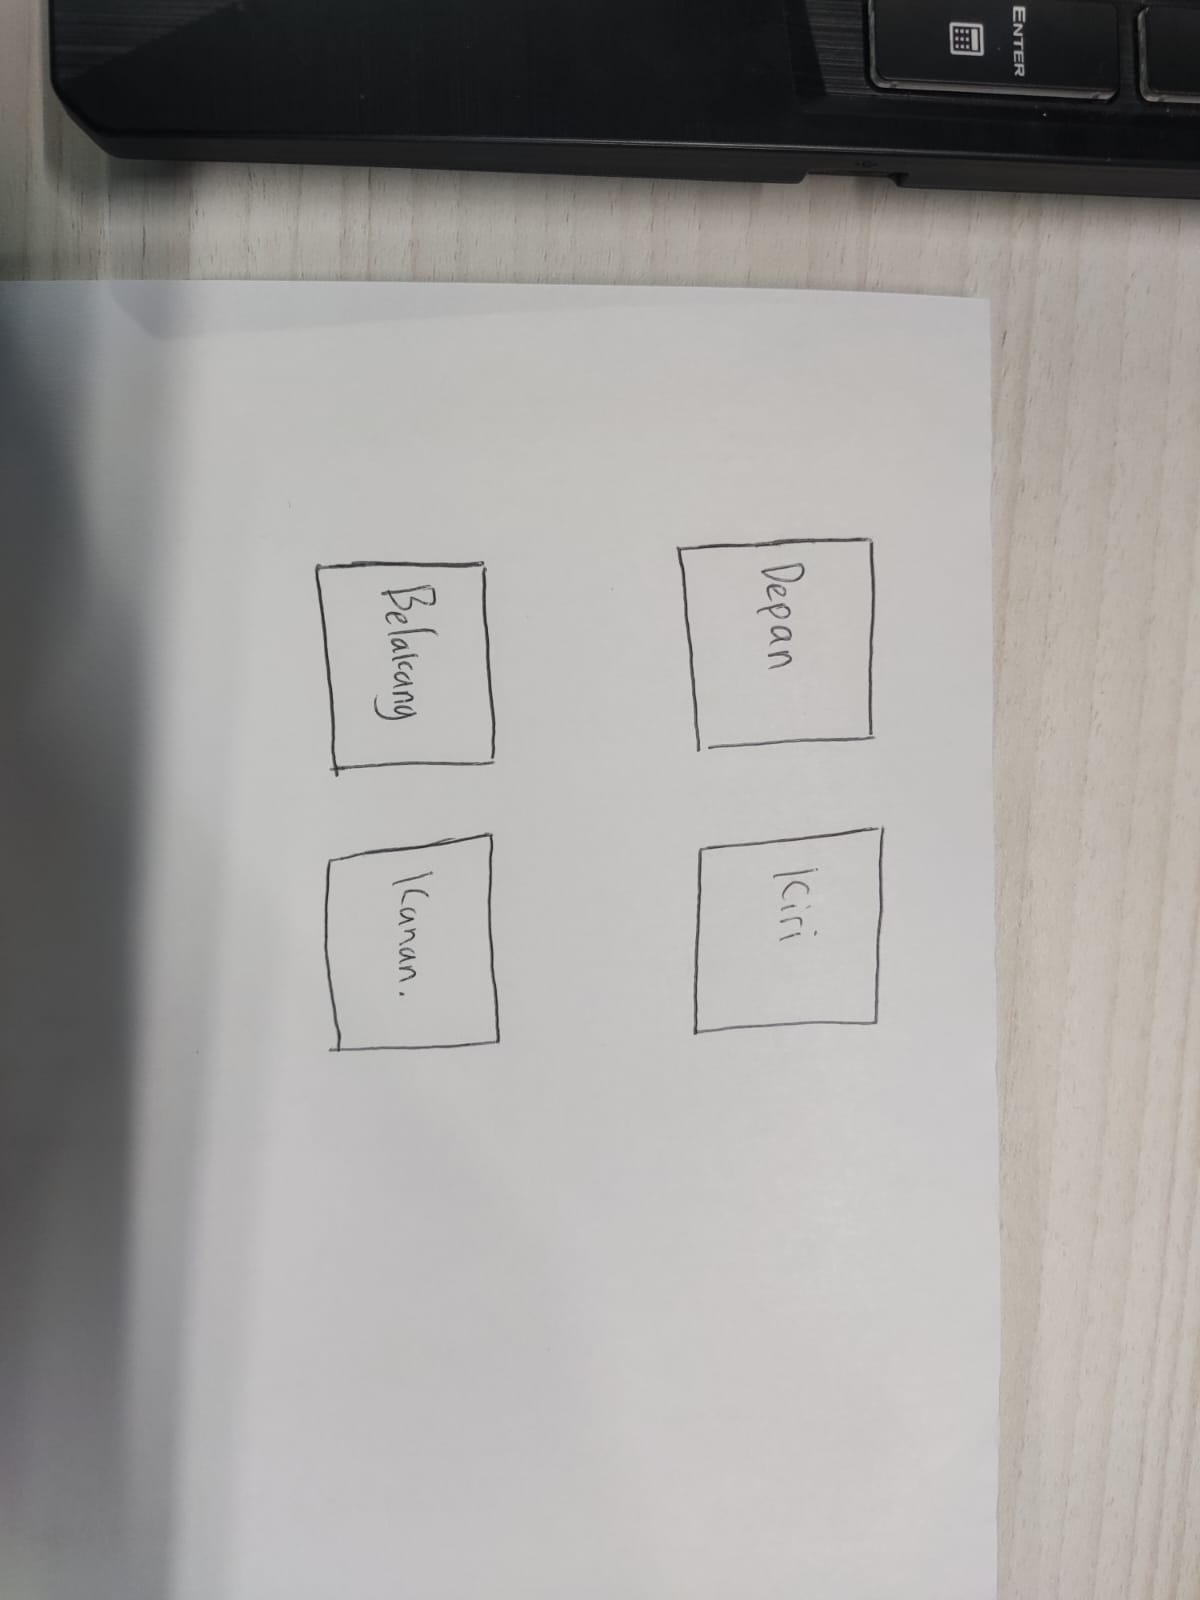 ENTER
Depan
Kiri
Belakang
Kanan.